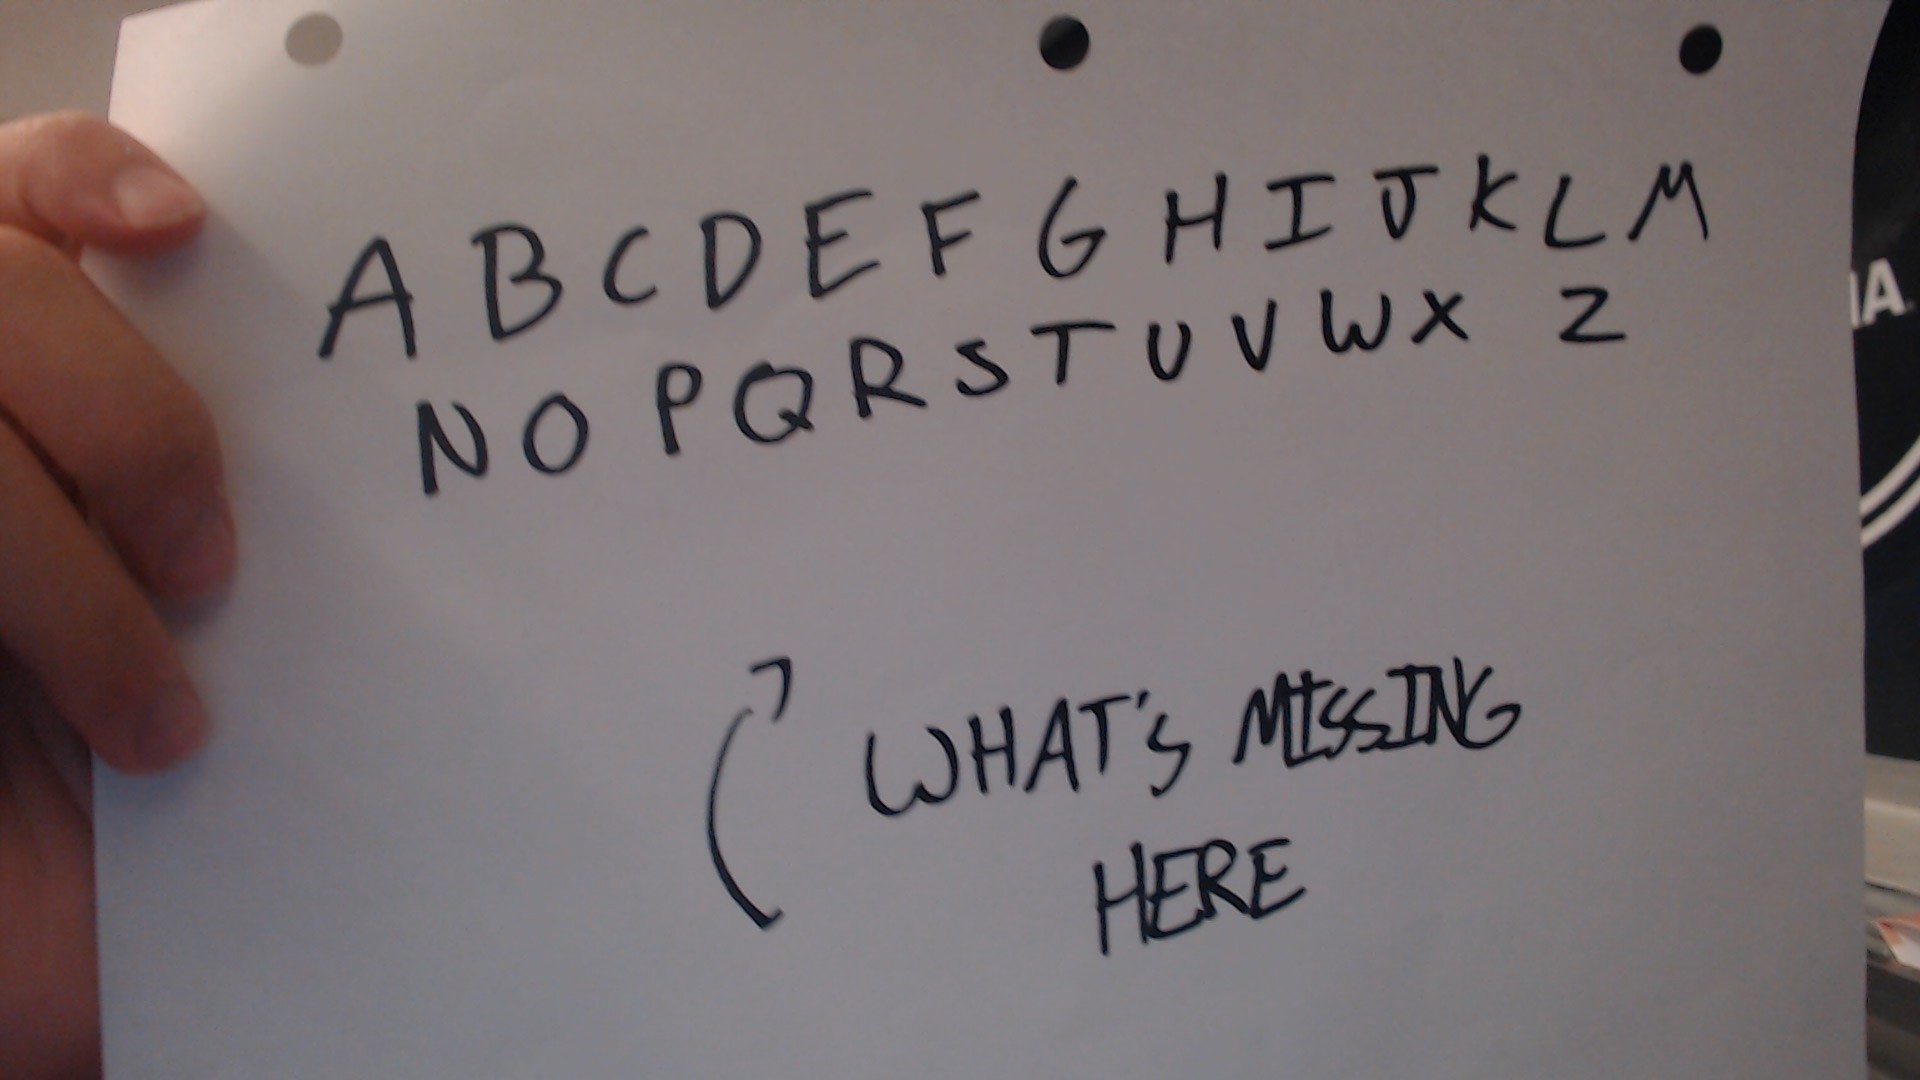 A B C D E F G H I J K L M
N O P Q R S T U V W X Z
WHAT's MISSING
HERE